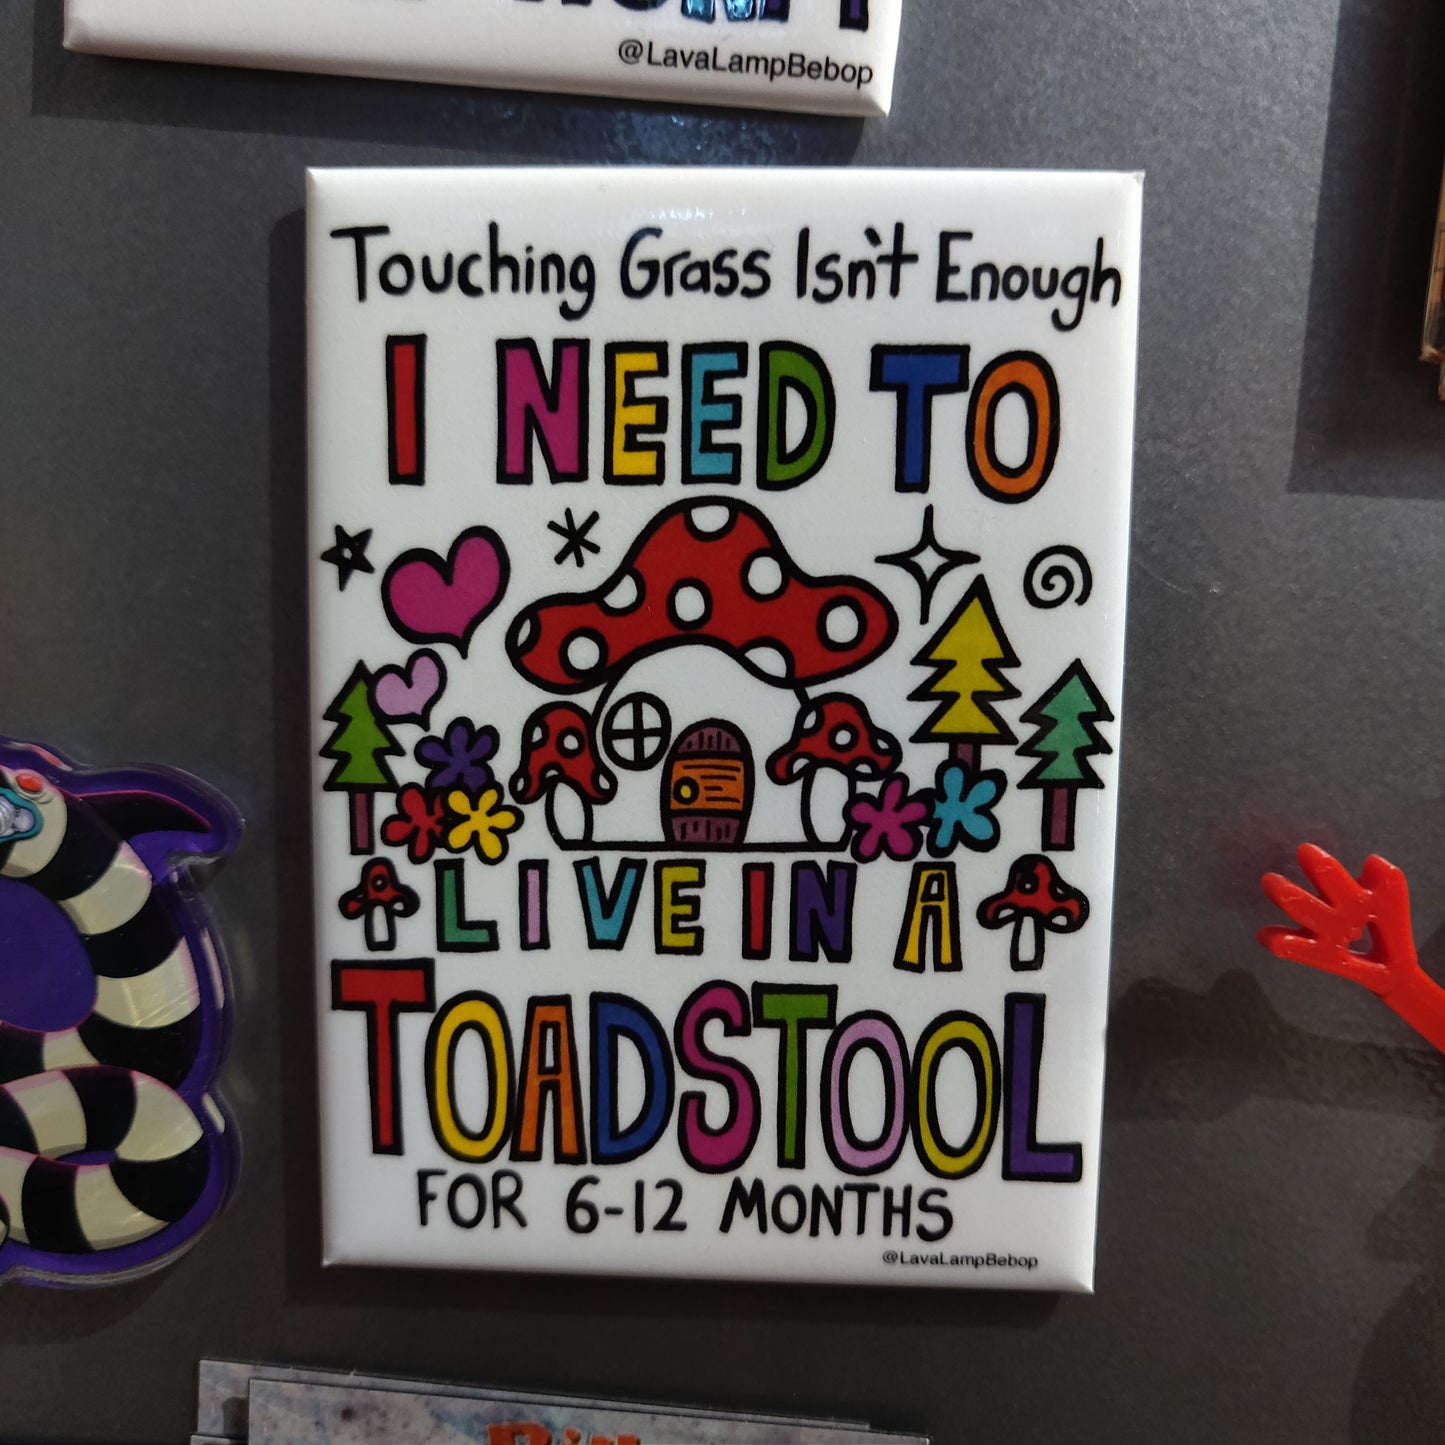 @LavaLampBebop
Touching Grass Isn't Enough
I NEED TO
LIVE IN A
TOADSTOOL
FOR 6-12 MONTHS
@LavaLampBebop